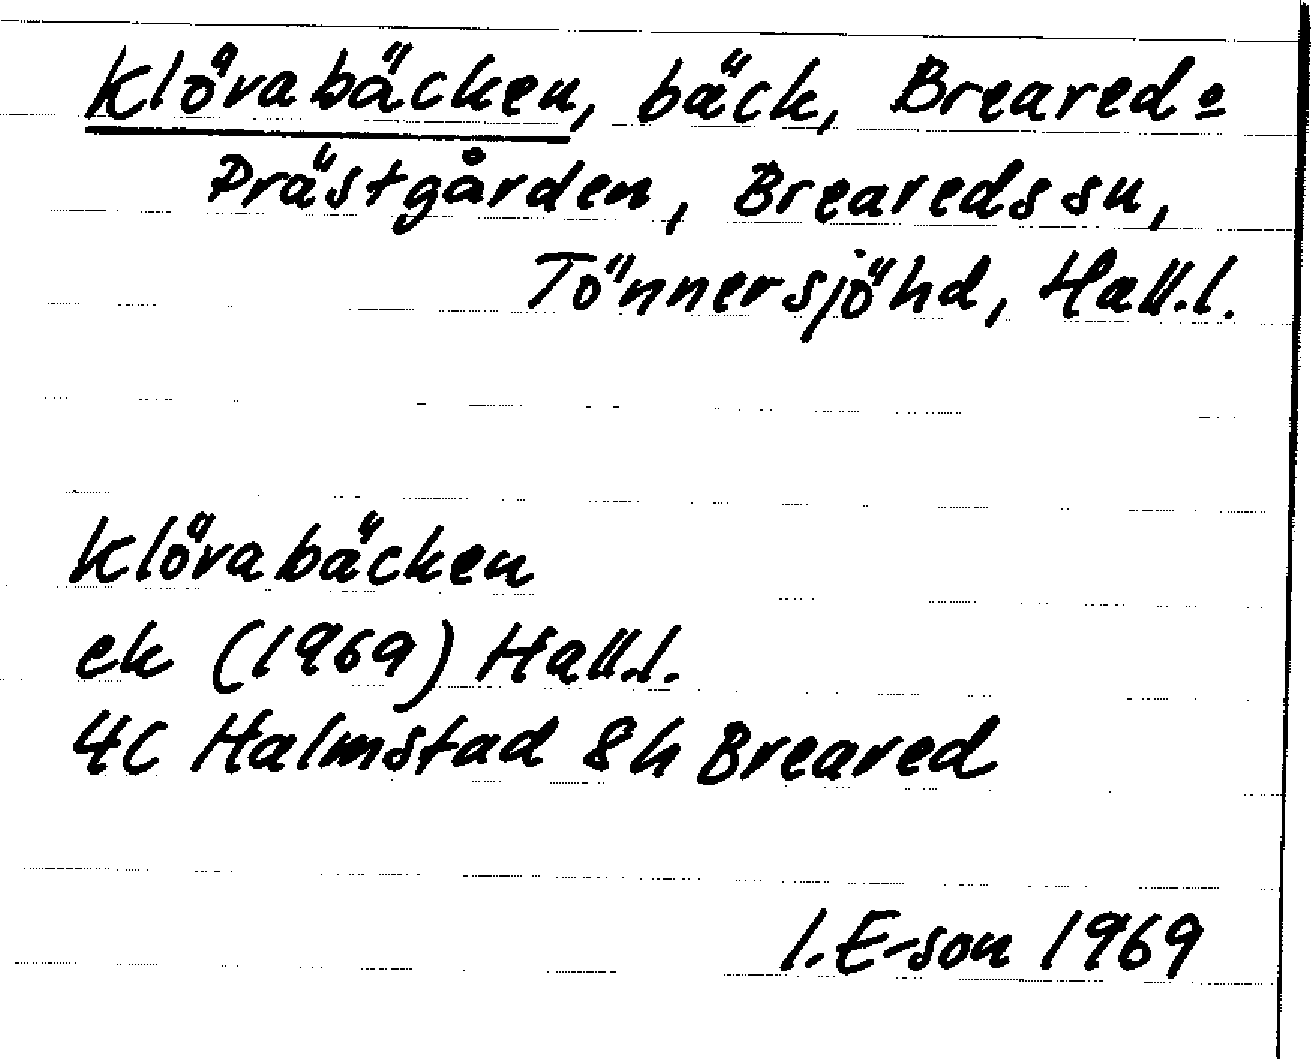 Klövabäcken, bäck, Breared=
Prästgården, Breareds sn,
Tönnersjöhd, Hall.l.
Klövabäcken
ek (1969) Hall.l.
4C Halmstad 8h Breared
I. E-son 1969